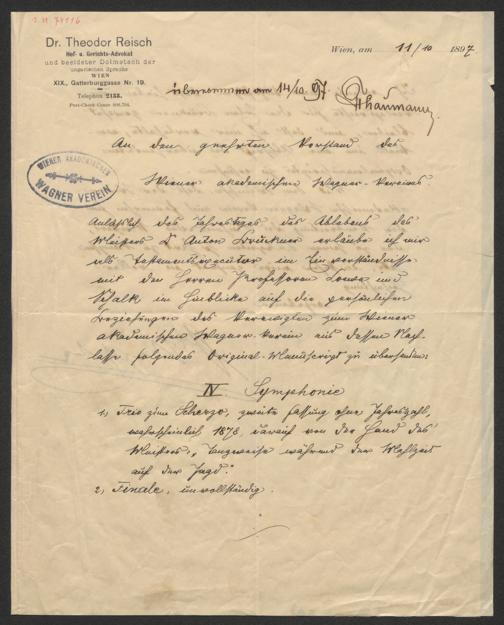 Dr. Theodor Reisch
Hof- u. Gerichts-Advokat
und beeideter Dolmetsch der
ungarischen Sprache
WIEN
XIX., Gatterburggasse Nr. 19.
Telephon 2133.
Post-Check-Conto
Wien, am 11/10 1897
übernommen am 14/10 97 Thaumann
An den geehrten Vorstand des
Wiener akademischen Wagner-Vereins
WIENER AKADEMISCHER
WAGNER VEREIN
Anläßlich des Jahrestages des Ablebens des
Meisters Dr Anton Bruckner erlaube ich mir
als Testamentsexecutor im Einverständnisse
mit den Herren Professoren Loewe und
Schalk im Hinblicke auf die persönlichen
Beziehungen des Verewigten zum Wiener
akademischen Wagner-Verein aus dessen Nach-
lasse folgendes Original-Manuscript zu übersenden:
IV. Symphonie
1) Trio zum Scherzo, zweite Fassung ohne Jahreszahl,
wahrscheinlich 1878, darauf von der Hand des
Meisters: „Tanzweise während der Mahlzeit
auf der Jagd."
2) Finale, unvollständig.